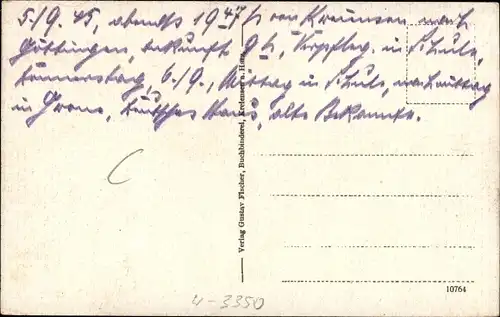 5./9. 45, abends 19 47 h von Kreiensen nach
Göttingen, Ankunft 9 h, Verpfleg. in Schule,
Donnerstag, 6./9., Mittag in Schule, nachmittag
in Grone, Deutsches Haus, alte Bekannte.
Verlag Gustav Fischer, Buchbinderei, Kreiensen a. Harz
10764
4-3350